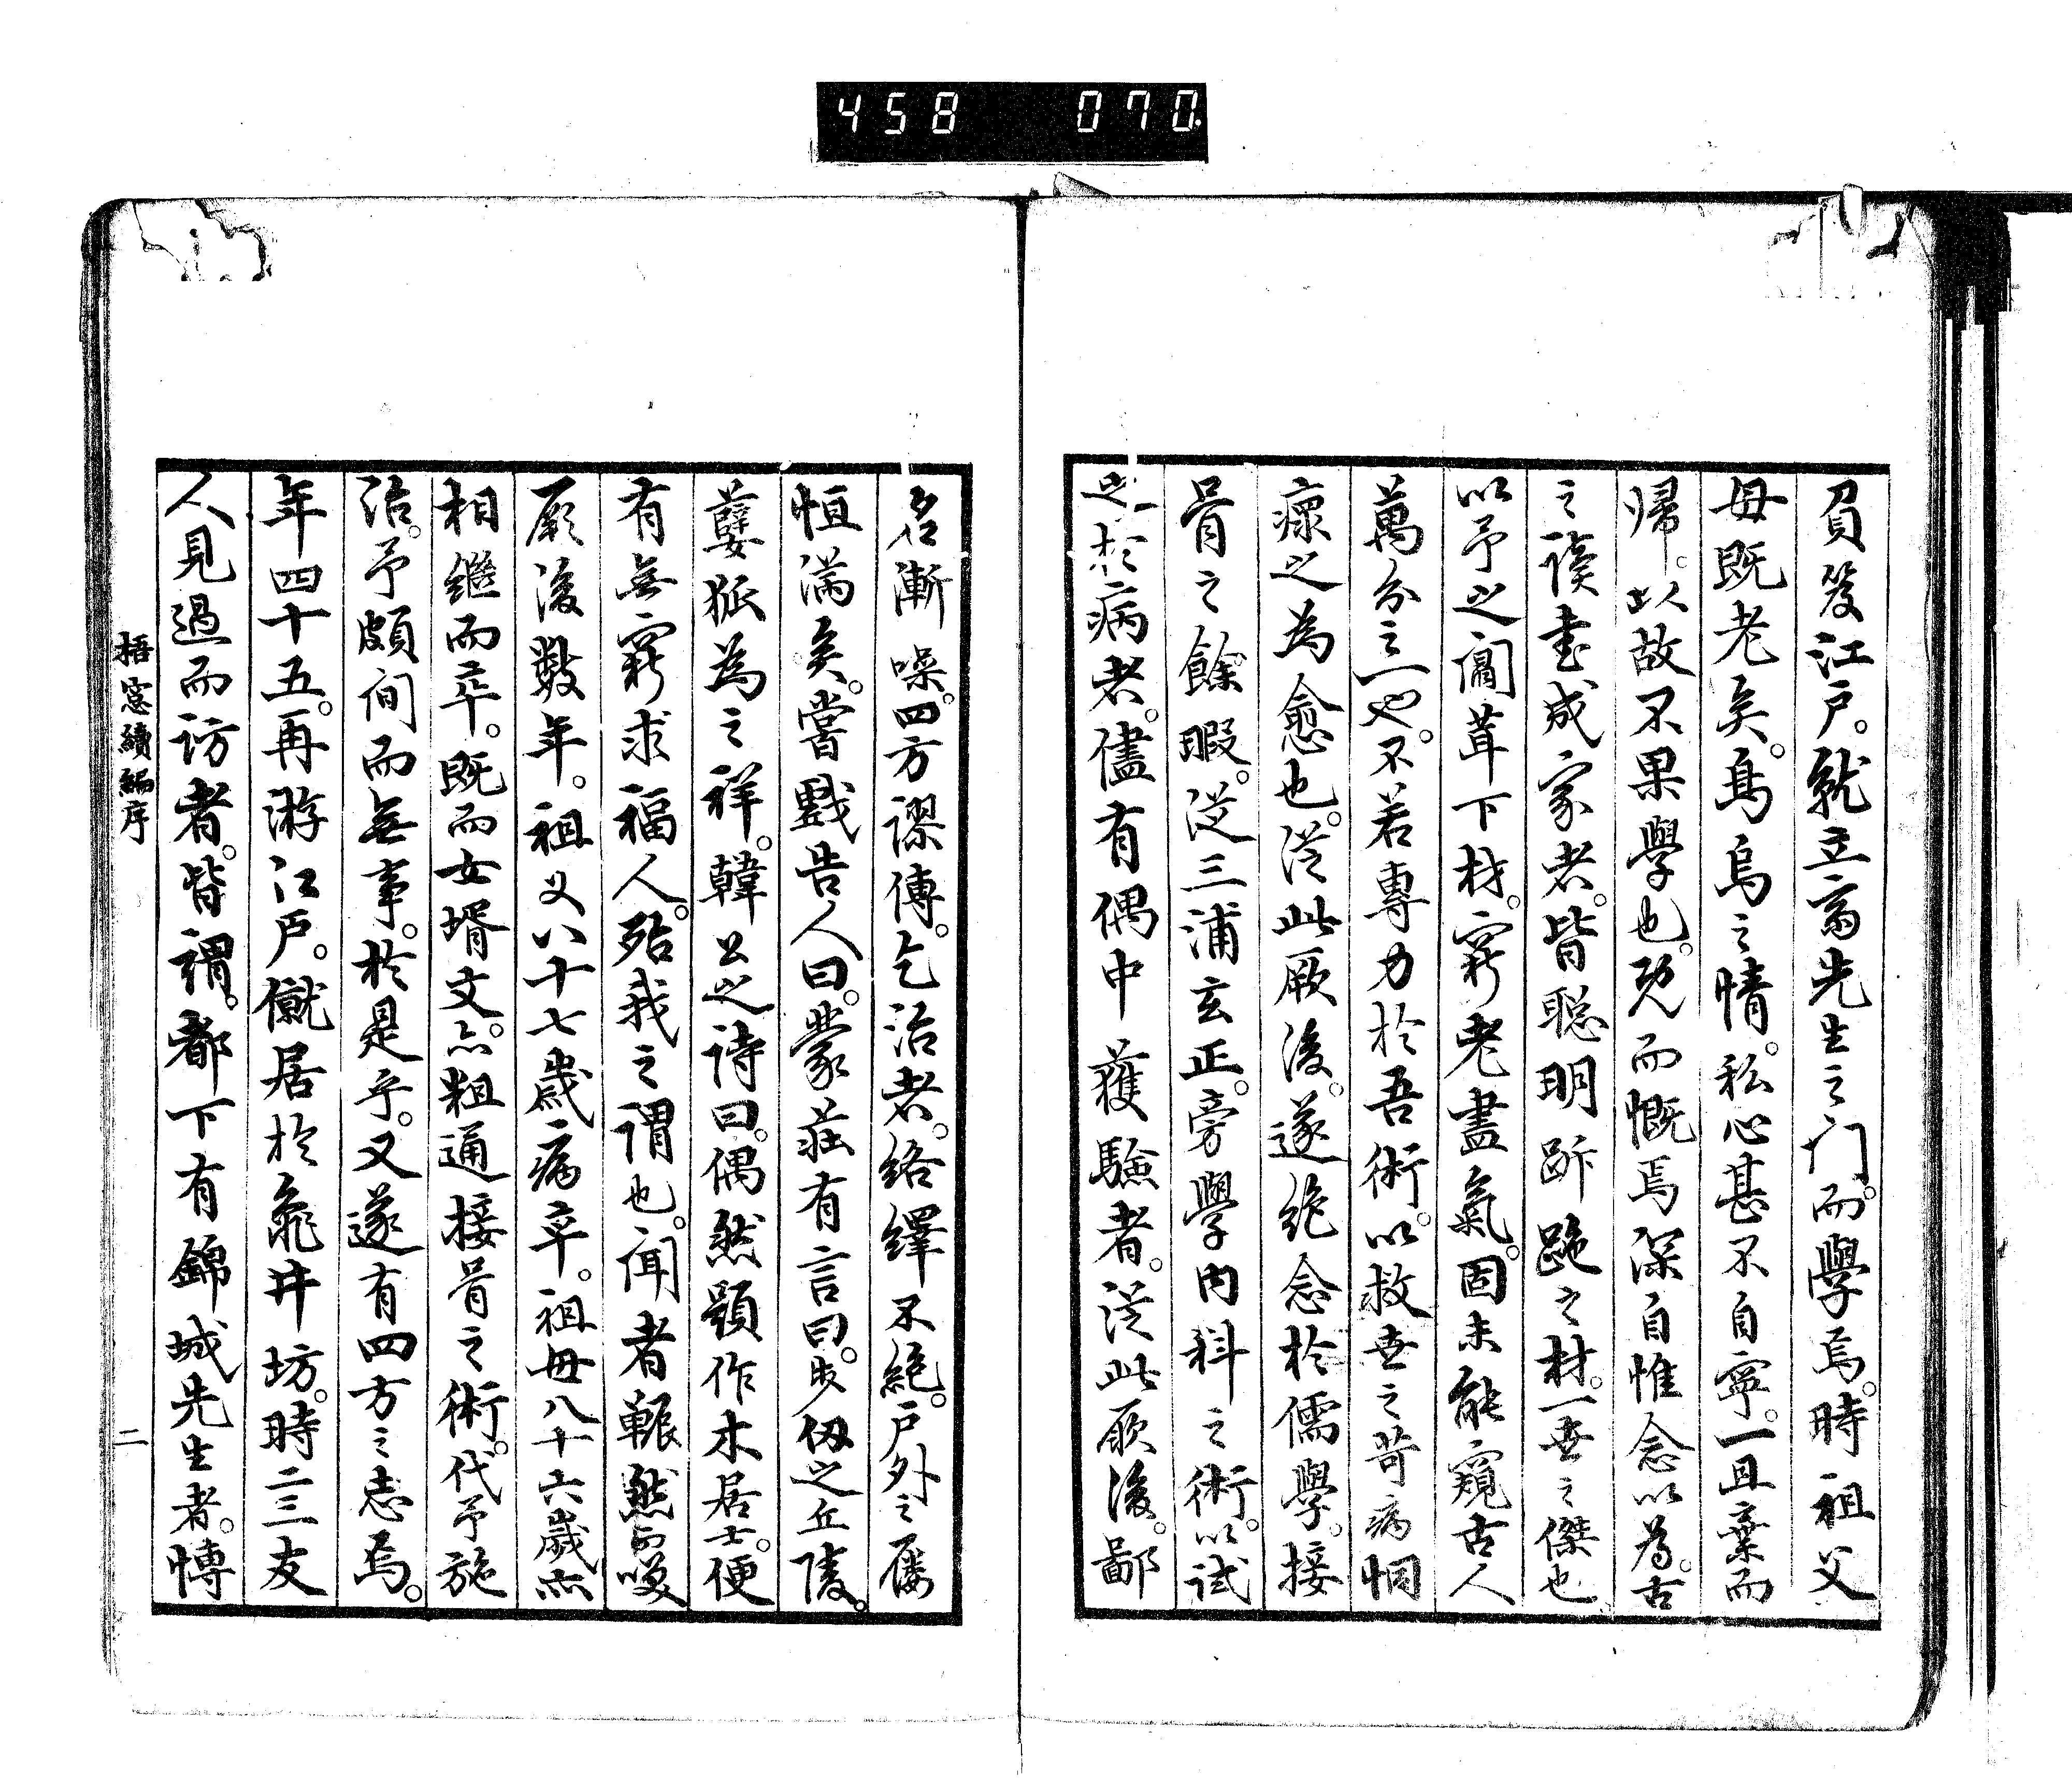 458 070.
負笈江戸。就立斎先生之门。而學焉。時祖父
母既老矣。烏烏之情。私心甚不自寧。一旦棄而
帰。以故不果學也。既而慨焉深自惟念以為。古
之讀書成家者。皆聡明跅跪之材。一世之傑也
以予之闒茸下材。窮老盡氣。固未能窺古人
萬分之一也。不若專力於吾術。以救世之苛病恫
瘝之為愈也。從此厥後。遂絶念於儒學。接
骨之餘暇。從三浦玄正。旁學内科之術。以試
之於病者。儘有偶中獲驗者。從此厥後。鄙
名漸噪。四方謬傳。乞治者。絡繹不絶。戸外之屨
恒滿矣。嘗戯告人曰。蒙荘有言曰。步仭之丘陵。
孽狐為之祥。韓公之詩曰。偶然題作木居士。便
有無窮求福人。殆我之謂也。聞者囅然而咲
厥後數年。祖父八十七歳病卒。祖母八十六歳亦
相繼而卒。既而女壻文。亦粗通接骨之術。代予施
治。予頗间而無事。於是乎。又遂有四方之志焉。
年四十五。再游江戸。僦居於龜井坊。時二三友
人見過而访者。皆謂。都下有錦城先生者。愽
梧窓續編序
二